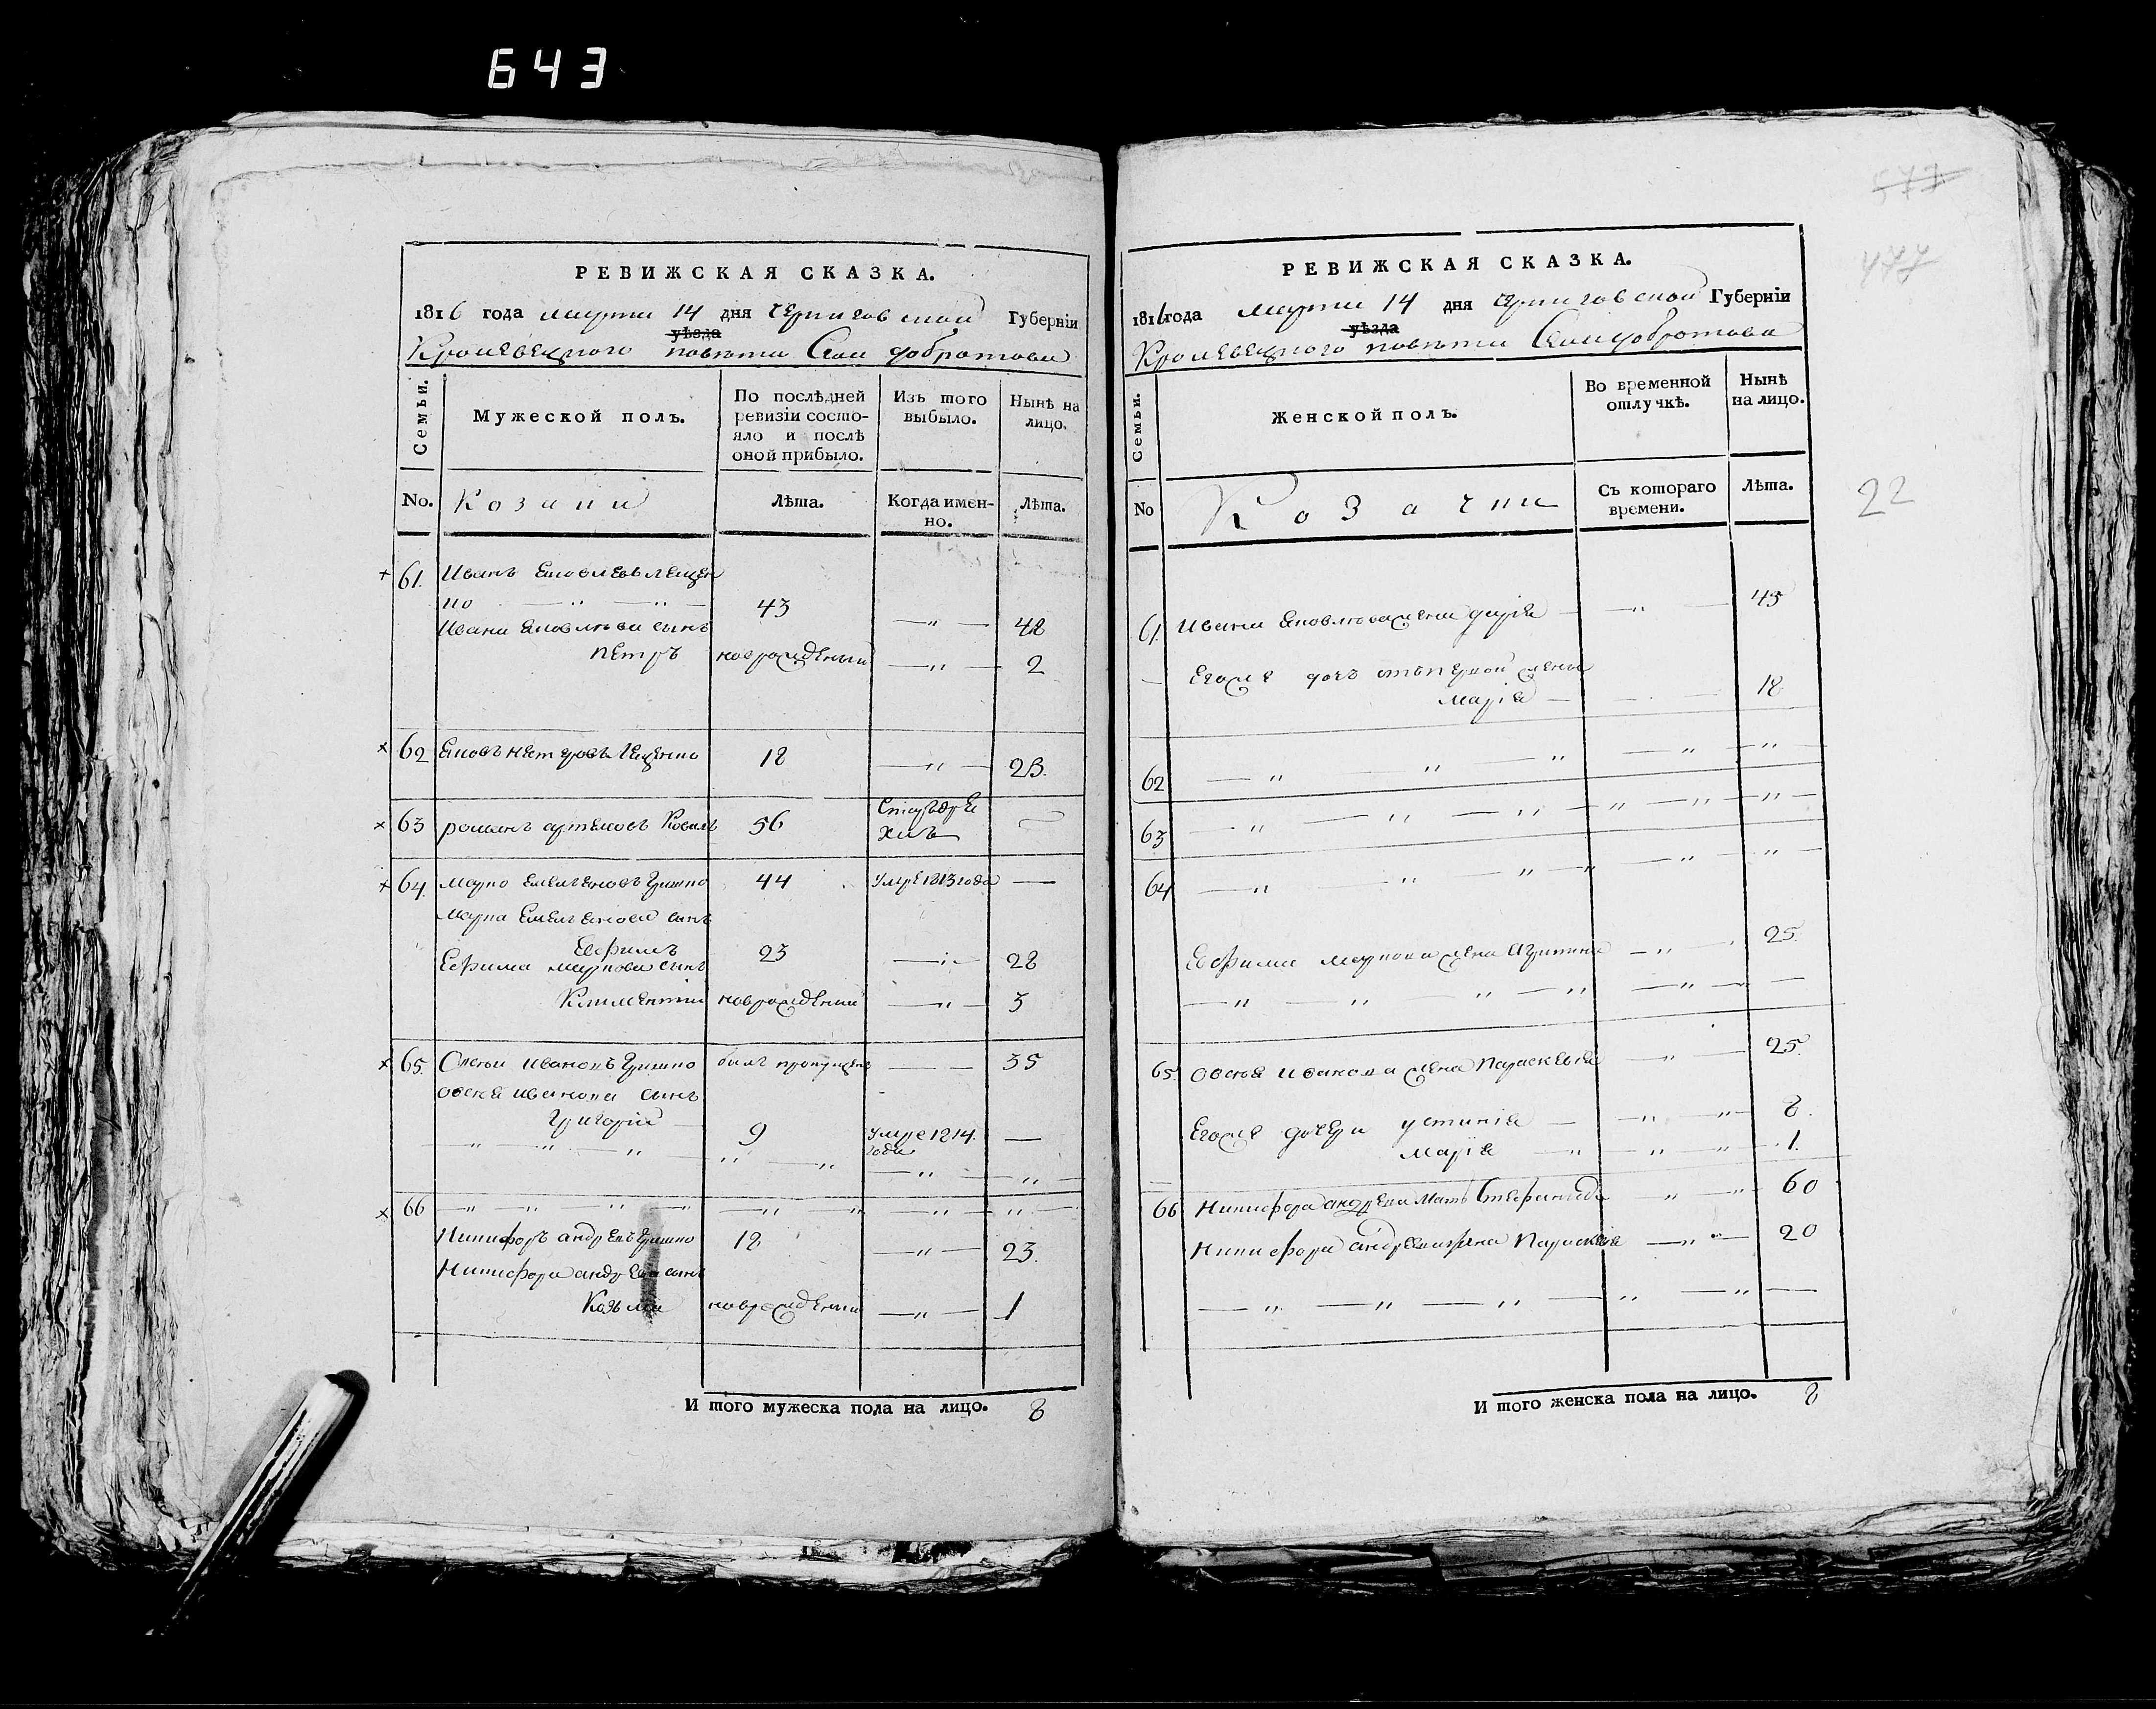 643
РЕВИЖСКАЯ СКАЗКА.
1816 года марта 14 дня Черниговской Губерніи
уѣзда
Кролевецкого повѣта Села добротова
Семьи.
Мужеской полъ.
По послѣдней ревизіи состояло и послѣ оной прибыло.
Изъ того выбыло.
Нынѣ на лицо.
No.
Козаки
Лѣта.
Когда именно.
Лѣта.
61. Иванъ Яковлевъ Лещен
ко 43 — " — 48
Ивана Яковлева сынъ
Петръ новорожденный — " — 2
62 Яковъ Петровъ Лещенко 18 — " — 23.
63 романъ артемовъ Коваль 56
64. Марко Емельяновъ Гришко 44 умре 1813 года —
Марка Емельянова сынъ
Евфимъ 23 — " — 28
Евфима Маркова сынъ
Климентий новорожденный — " — 3
65. Овсѣй Ивановъ Гришко былъ пропущенъ — — 35
Овсѣя Иванова сынъ
Григорій 9 умре 1814. года —
66 — " — " — " — "
Никифоръ андреевъ Гришко 18 — " — 23.
Никифора андреева сынъ
Козьма новорожденный — " — 1
И того мужеска пола на лицо. 8
577
477
РЕВИЖСКАЯ СКАЗКА.
1816 года марта 14 дня Черниговской Губерніи
уѣзда
Кролевецкого повѣта Села добротова
Семьи.
Женской полъ.
Во временной отлучкѣ.
Нынѣ на лицо.
No
Козачки
Съ котораго времени.
Лѣта.
22
61. Ивана Яковлева жена дарія — " — 45
Егоже дочь отъ первой жены
Марія — 18
62 — " — " — " — " — "
63 — " — " — " — " — " — "
64 — " — " — " — " — "
Евфима Маркова жена 25.
— " — " — " — " — " —
65. Овсѣя Иванова жена Параскевія — " — 25.
Егоже дочери устинія — " — " 8.
Марія — " — " — " 1.
66 Никифора андреева Мать Стефанида " — " 60
Никифора андреева жена Параскевія — " — 20
— " — " — " — " — " —
И того женска пола на лицо. 8